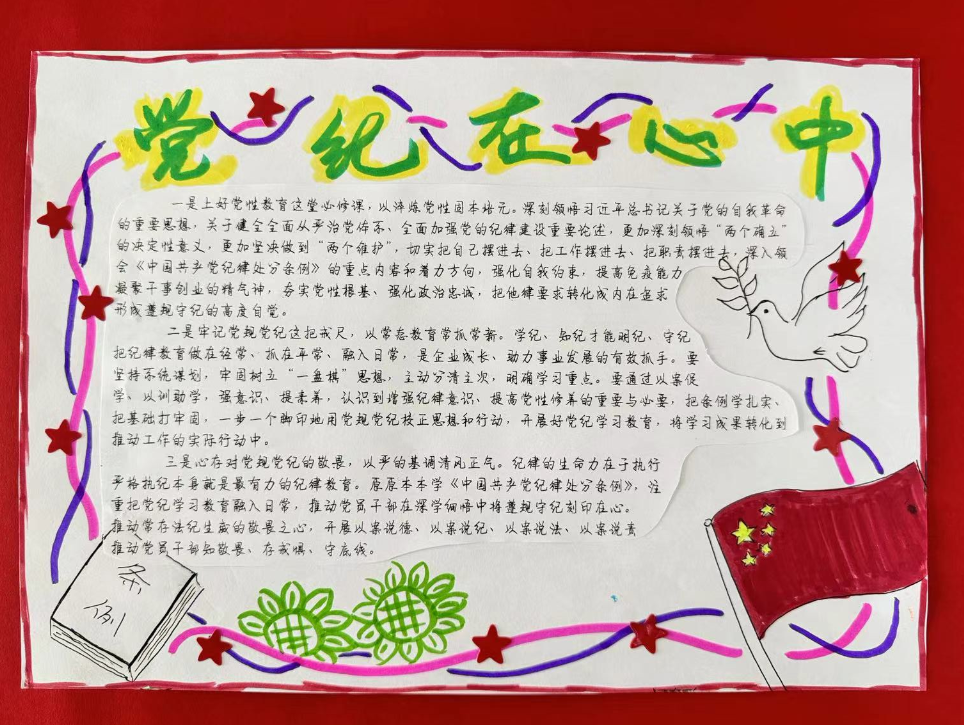 党纪在心中
一是上好党性教育这堂必修课，以淬炼党性固本培元。深刻领悟习近平总书记关于党的自我革命
的重要思想，关于健全全面从严治党体系、全面加强党的纪律建设重要论述，更加深刻领悟“两个确立”
的决定性意义，更加坚决做到“两个维护”，切实把自己摆进去、把工作摆进去、把职责摆进去，深入领
会《中国共产党纪律处分条例》的重点内容和着力方向，强化自我约束，提高免疫能力
凝聚干事创业的精气神，夯实党性根基、强化政治忠诚，把他律要求转化成内在追求
形成遵规守纪的高度自觉。
二是牢记党规党纪这把戒尺，以常态教育常抓常新。学纪、知纪才能明纪、守纪
把纪律教育做在经常、抓在平常、融入日常，是企业成长、助力事业发展的有效抓手。要
坚持系统谋划，牢固树立“一盘棋”思想，主动分清主次，明确学习重点。要通过以案促
学、以训助学，强意识、提素养，认识到增强纪律意识、提高党性修养的重要与必要，把条例学扎实、
把基础打牢固，一步一个脚印地用党规党纪校正思想和行动，开展好党纪学习教育，将学习成果转化到
推动工作的实际行动中。
三是心存对党规党纪的敬畏，以严的基调清风正气。纪律的生命力在于执行
严格执纪本身就是最有力的纪律教育。原原本本学《中国共产党纪律处分条例》，注
重把党纪学习教育融入日常，推动党员干部在深学细悟中将遵规守纪刻印在心。
推动常存法纪生威的敬畏之心，开展以案说德、以案说纪、以案说法、以案说责
推动党员干部知敬畏、存戒惧、守底线。
条例